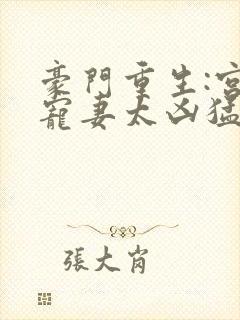 豪門重生:宮
寵妻太凶猛
張大肖